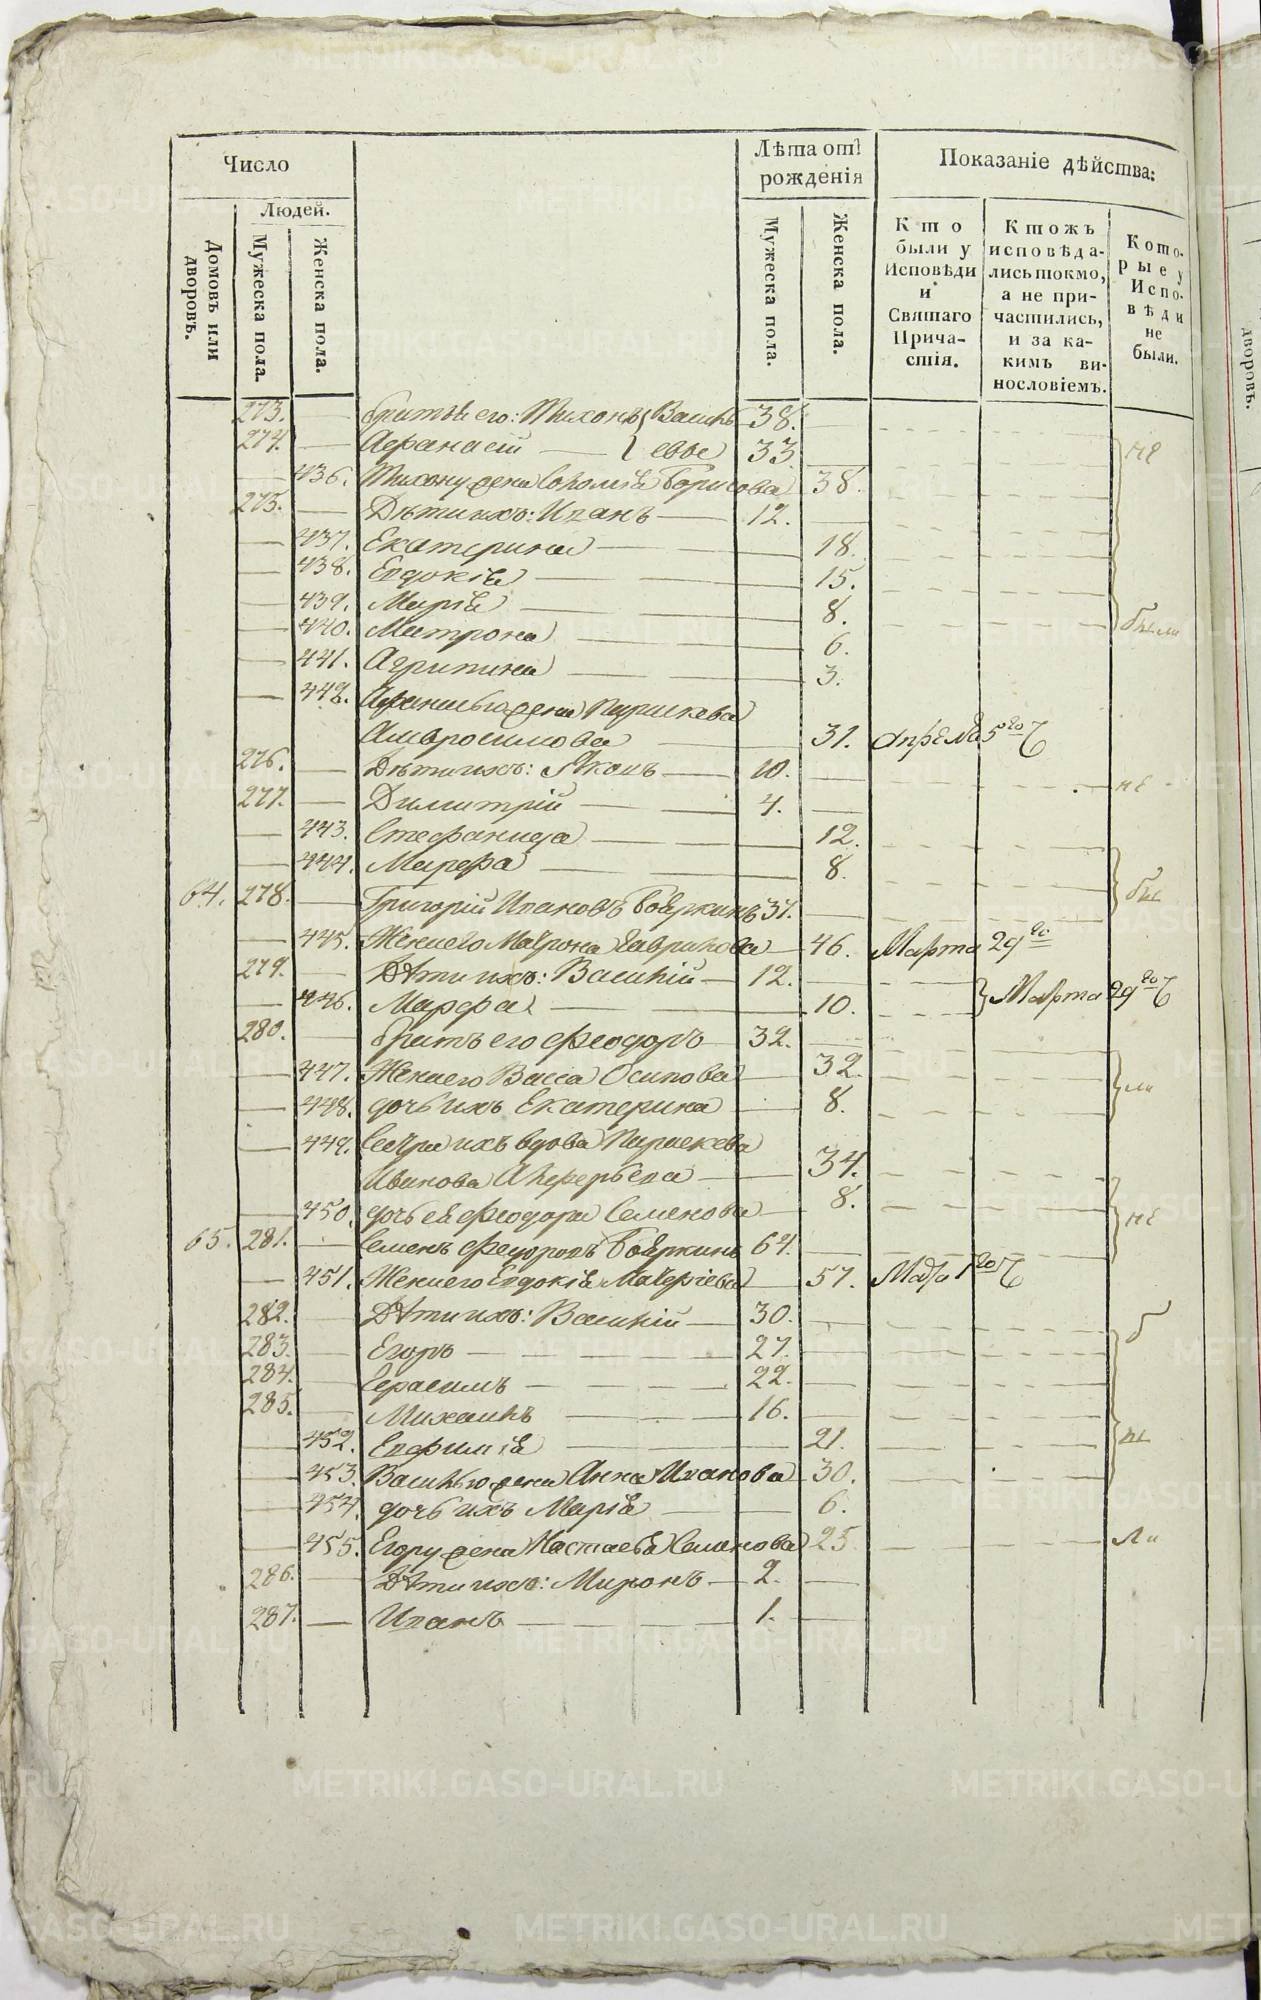 Число
Людей.
Домовъ или дворовъ.
Мужеска пола.
Женска пола.
Лѣта отъ рожденія
Мужеска пола.
Женска пола.
Показаніе дѣйства:
Кто были у Исповѣди и Святаго Причастія.
Ктожъ исповѣдались токмо, а не причастились, и за какимъ винословіемъ.
Которые у Исповѣди не были.
273. Братья его: Тихонъ } Василь 38.
274. Афанасій } евы 33 не
436. Тихону жена Соломія Борисова 38.
275. Дѣти ихъ: Иванъ 12.
437. Екатерина 18.
438. Евдокія 15.
439. Марія 8.
440. Матрона 6. были
441. Агрипина 3.
442. Афанасью жена Параскева
Амвросимова 31. Апреля 5го
276. Дѣти ихъ: Яковъ 10.
277. Димитрій 4. не
443. Стефанида 12.
444. Марфа 8.
64. 278. Григорій Ивановъ Бояркинъ 37. бы
445. Жена его Матрона Гаврилова 46. Марта 29го
279. Дѣти ихъ: Василій 12.
446. Марфа 10. } Марта 29го
280. Братъ его Феодоръ 32.
447. Жена его Васса Осипова 32.
448. дочь ихъ Екатерина 8. ли
449. Сестра ихъ вдова Параскева
Иванова 34.
450. дочь ея Феодора Семенова 8. не
65. 281. Семенъ Федоровъ Бояркинъ 64.
451. Жена его Евдокія 57. Мая 1го
282. Дѣти ихъ: Василій 30. б
283. Егоръ 27.
284. Герасимъ 22.
285. Михаилъ 16.
452. Евфимія 21. ы
453. Василью жена Анна Иванова 30.
454. дочь ихъ Марія 6.
455. Егору жена Настасья Семенова 25. ли
286. Дѣти ихъ: Миронъ 2.
287. Иванъ 1.
дворовъ.
METRIKI.GASO-URAL.RU